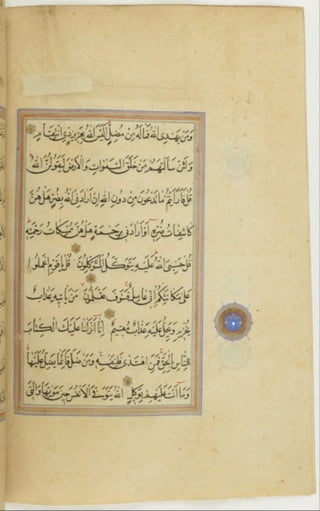 ومن يهدى الله فماله من مضل اليس الله بعزيز ذى انتقام
ولئن سالتهم من خلق السموات والارض ليقولن الله
قل افرايتم ما تدعون من دون الله ان ارادنى الله بضر هل هن
كاشفات ضره او ارادنى برحمة هل هن ممسكات رحمته
قل حسبى الله عليه يتوكل المتوكلون قل يا قوم اعملوا
على مكانتكم انى عامل فسوف تعلمون من ياتيه عذاب
يخزيه ويحل عليه عذاب مقيم انا انزلنا عليك الكتاب
للناس بالحق فمن اهتدى فلنفسه ومن ضل فانما يضل عليها
وما انت عليهم بوكيل الله يتوفى الانفس حين موتها والتى